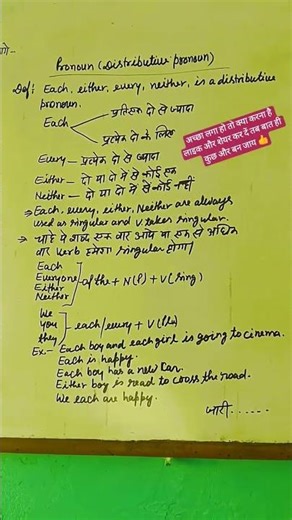 Pronoun (Distributive pronoun)
Def: Each, either, every, neither, is a distributive
pronoun.
Each
प्रत्येक दो से ज्यादा
प्रत्येक दो के लिए
अच्छा लगा हो तो क्या करना है
लाइक और शेयर कर दें तब बात ही
कुछ और बन जाय 👍
Every – प्रत्येक दो से ज्यादा
Either – दो या दो में से कोई एक
Neither – दो या दो में से कोई नहीं
⇒ Each, every, either, Neither are always
used as singular and V takes singular.
⇒ चाहे ये शब्द एक बार आये या एक से अधिक
बार verb हमेशा singular होगा।
Each
Everyone
Either
Neither
of the + N(P) + V(sing)
We
you
they
each/every + V(Plu)
Ex:- Each boy and each girl is going to cinema.
Each is happy.
Each boy has a new car.
Either boy is read to cross the road.
We each are happy.
जारी......